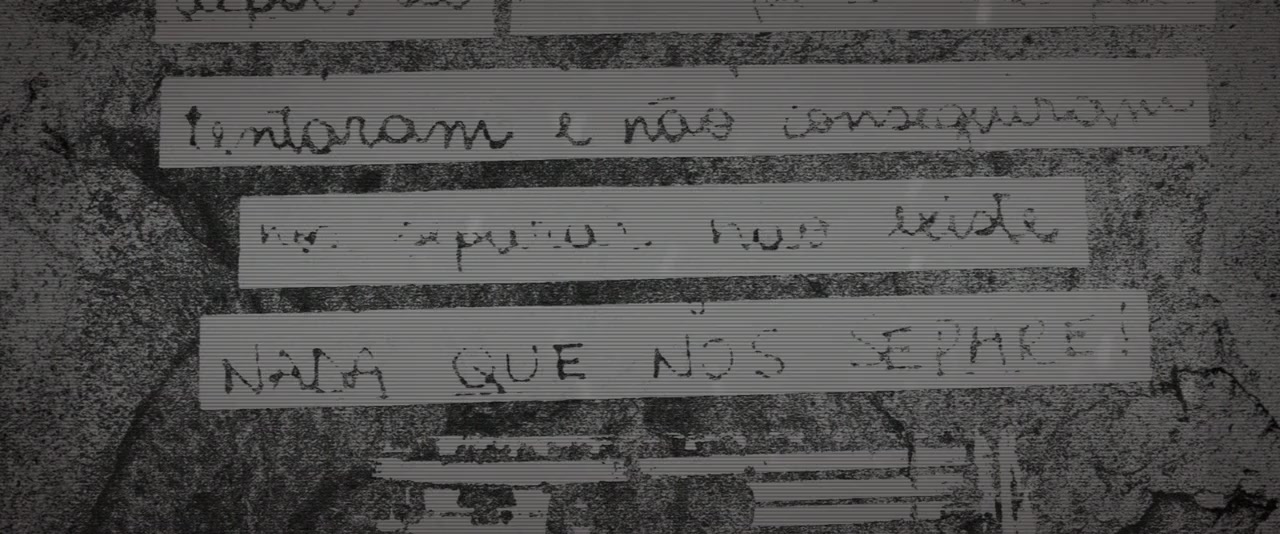 tentaram e não conseguiram
nos separar não existe
NADA QUE NOS SEPARE!